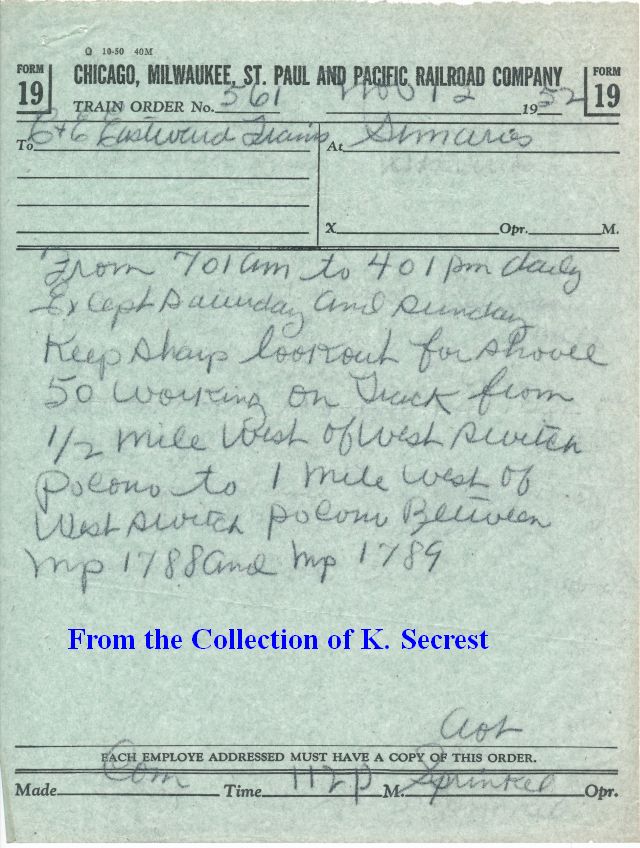 Q 10-50 40M
FORM 19
CHICAGO, MILWAUKEE, ST. PAUL AND PACIFIC RAILROAD COMPANY
FORM 19
TRAIN ORDER No. 561 Nov 12 1952
To C+E Eastward Trains At St maries
X Opr. M.
From 701 am to 401 pm daily
Except Saturday and Sunday
Keep sharp lookout for shovel
50 working on Track from
1/2 mile West of West switch
pocono to 1 mile west of
West switch pocono Between
mp 1788 and mp 1789
From the Collection of K. Secrest
aot
EACH EMPLOYE ADDRESSED MUST HAVE A COPY OF THIS ORDER.
Made Com Time 112 p M. Sprinkel Opr.